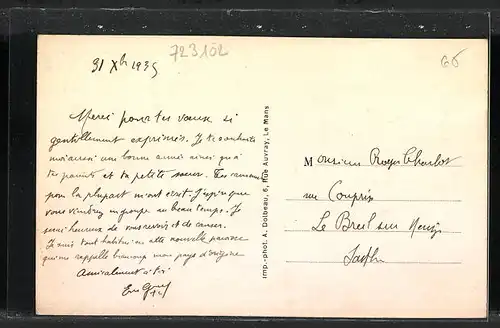 723102
60
31 Xbr 1935
Merci pour tes vœux si
gentillement exprimés. Je te souhaite
moi aussi une bonne année ainsi qu'à
tes parents et ta petite sœur. Tes camarades
pour la plupart m'ont écrit. J'espère que
vous viendrez en groupe au beau temps. Je
serai heureux de vous revoir et de causer.
Je suis tout habitué en cette nouvelle paroisse
qui me rappelle beaucoup mon pays d'origine
Amicalement à toi
Imp.-phot. A. Dolbeau, 6, Rue Auvray, Le Mans
Monsieur Roger Charlot
rue
Le Breil sur Merize
Sarthe